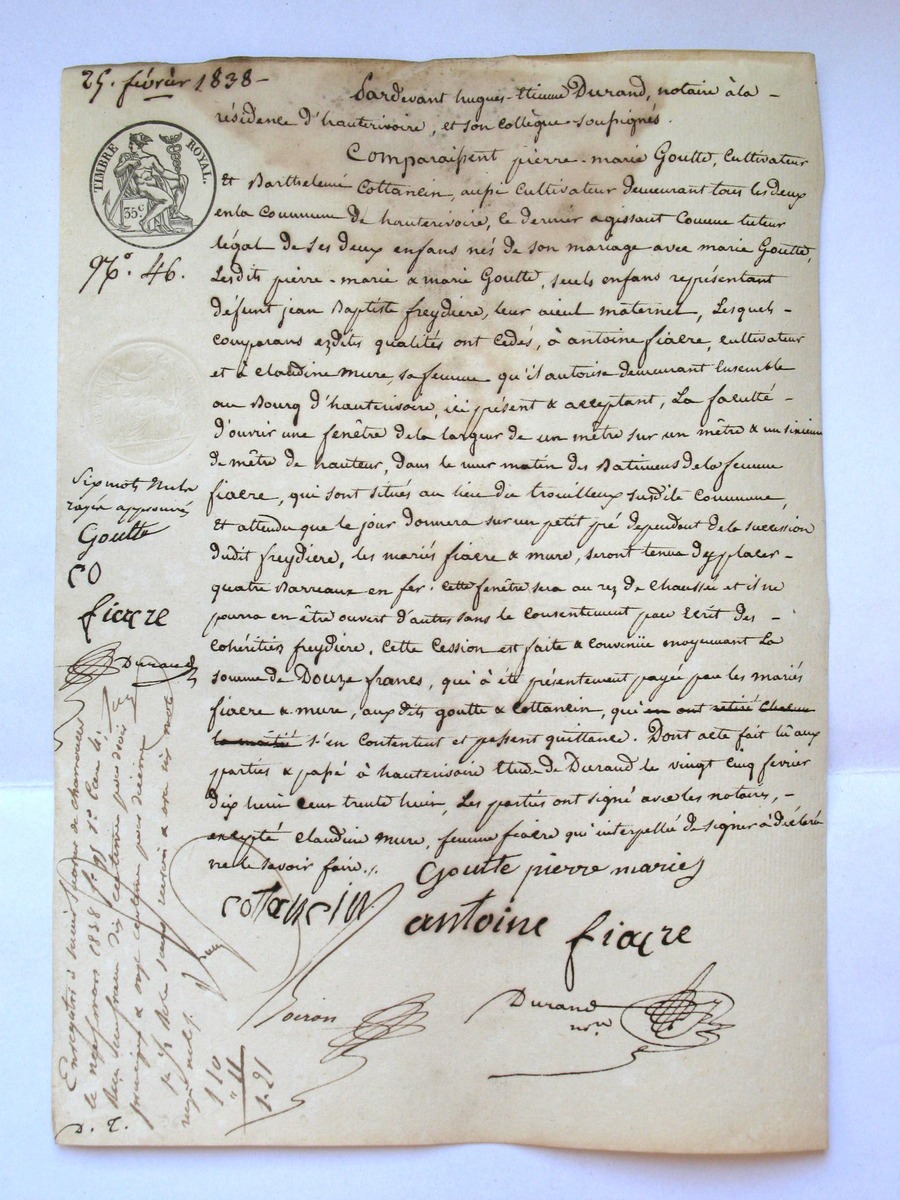 25. février 1838 -
Pardevant hugues-Etienne Durand, notaire à la -
résidence d'hauterivoire, et son collègue soussignés.
TIMBRE ROYAL.
35c
Comparaissent pierre-marie Goutte, Cultivateur
Et Barthelemi Cottancin, aussi Cultivateur demeurant tous les deux
en la Commune de hauterivoire, le dernier agissant Comme tuteur
légal de ses deux enfans nés de son mariage avec marie Goutte,
No. 46.
Lesdits pierre-marie & marie Goutte, seuls enfans représentant
défunt jean Baptiste freydiere, leur aieul maternel, Lesquels -
comparans ezdites qualités ont cédés, à antoine fiacre, cultivateur
et à claudine mure, sa femme qu'il autorise demeurant Ensemble
au Bourg d'hauterivoire, ici présent & acceptant, La faculté
d'ouvrir une fenêtre de la largeur de un mètre sur un mètre & un sixieme
de mètre de hauteur, dans le mur matin des Batimens de la femme
fiacre, qui sont situés au lieu du trouilleux susdite commune,
Et attendu que le jour donnera sur un petit pré dependant de la succession
dudit freydiere, les mariés fiacre & mure, seront tenus d'y placer -
quatre Barreaux en fer. Cette fenêtre sera au rez de chaussée et il ne
pourra en être ouvert d'autres sans le consentement par Ecrit des -
cohéritiers freydiere. Cette Cession est faite & convenüe moyennant La
somme de Douze francs, qui a été présentement payée par les mariés
fiacre & mure, auxdits goutte & Cottancin, qui en ont retiré Chacun
la moitié s'en Contentent et passent quittance. Dont acte fait lû aux
parties & passé à hauterivoire Etude de Durand le vingt cinq février
dix huit cent trente huit, Les parties ont signé avec les notaires, -
excepté claudine mure, femme fiacre qui interpellée de signer à déclaré
ne le savoir faire.
Six mots Nuls
rayés approuvés
Goutte
CO
fiacre
Durand
Goutte pierre marie
cottancin
antoine fiacre
Boiron
Durand
nre
Enregistré à
le neuf mars 1838 fo. 98 Ro. Case 4.
Reçu un franc dix centimes pour droit
principal & onze centimes pour decime
1 10
" 11
1. 21
D. T.